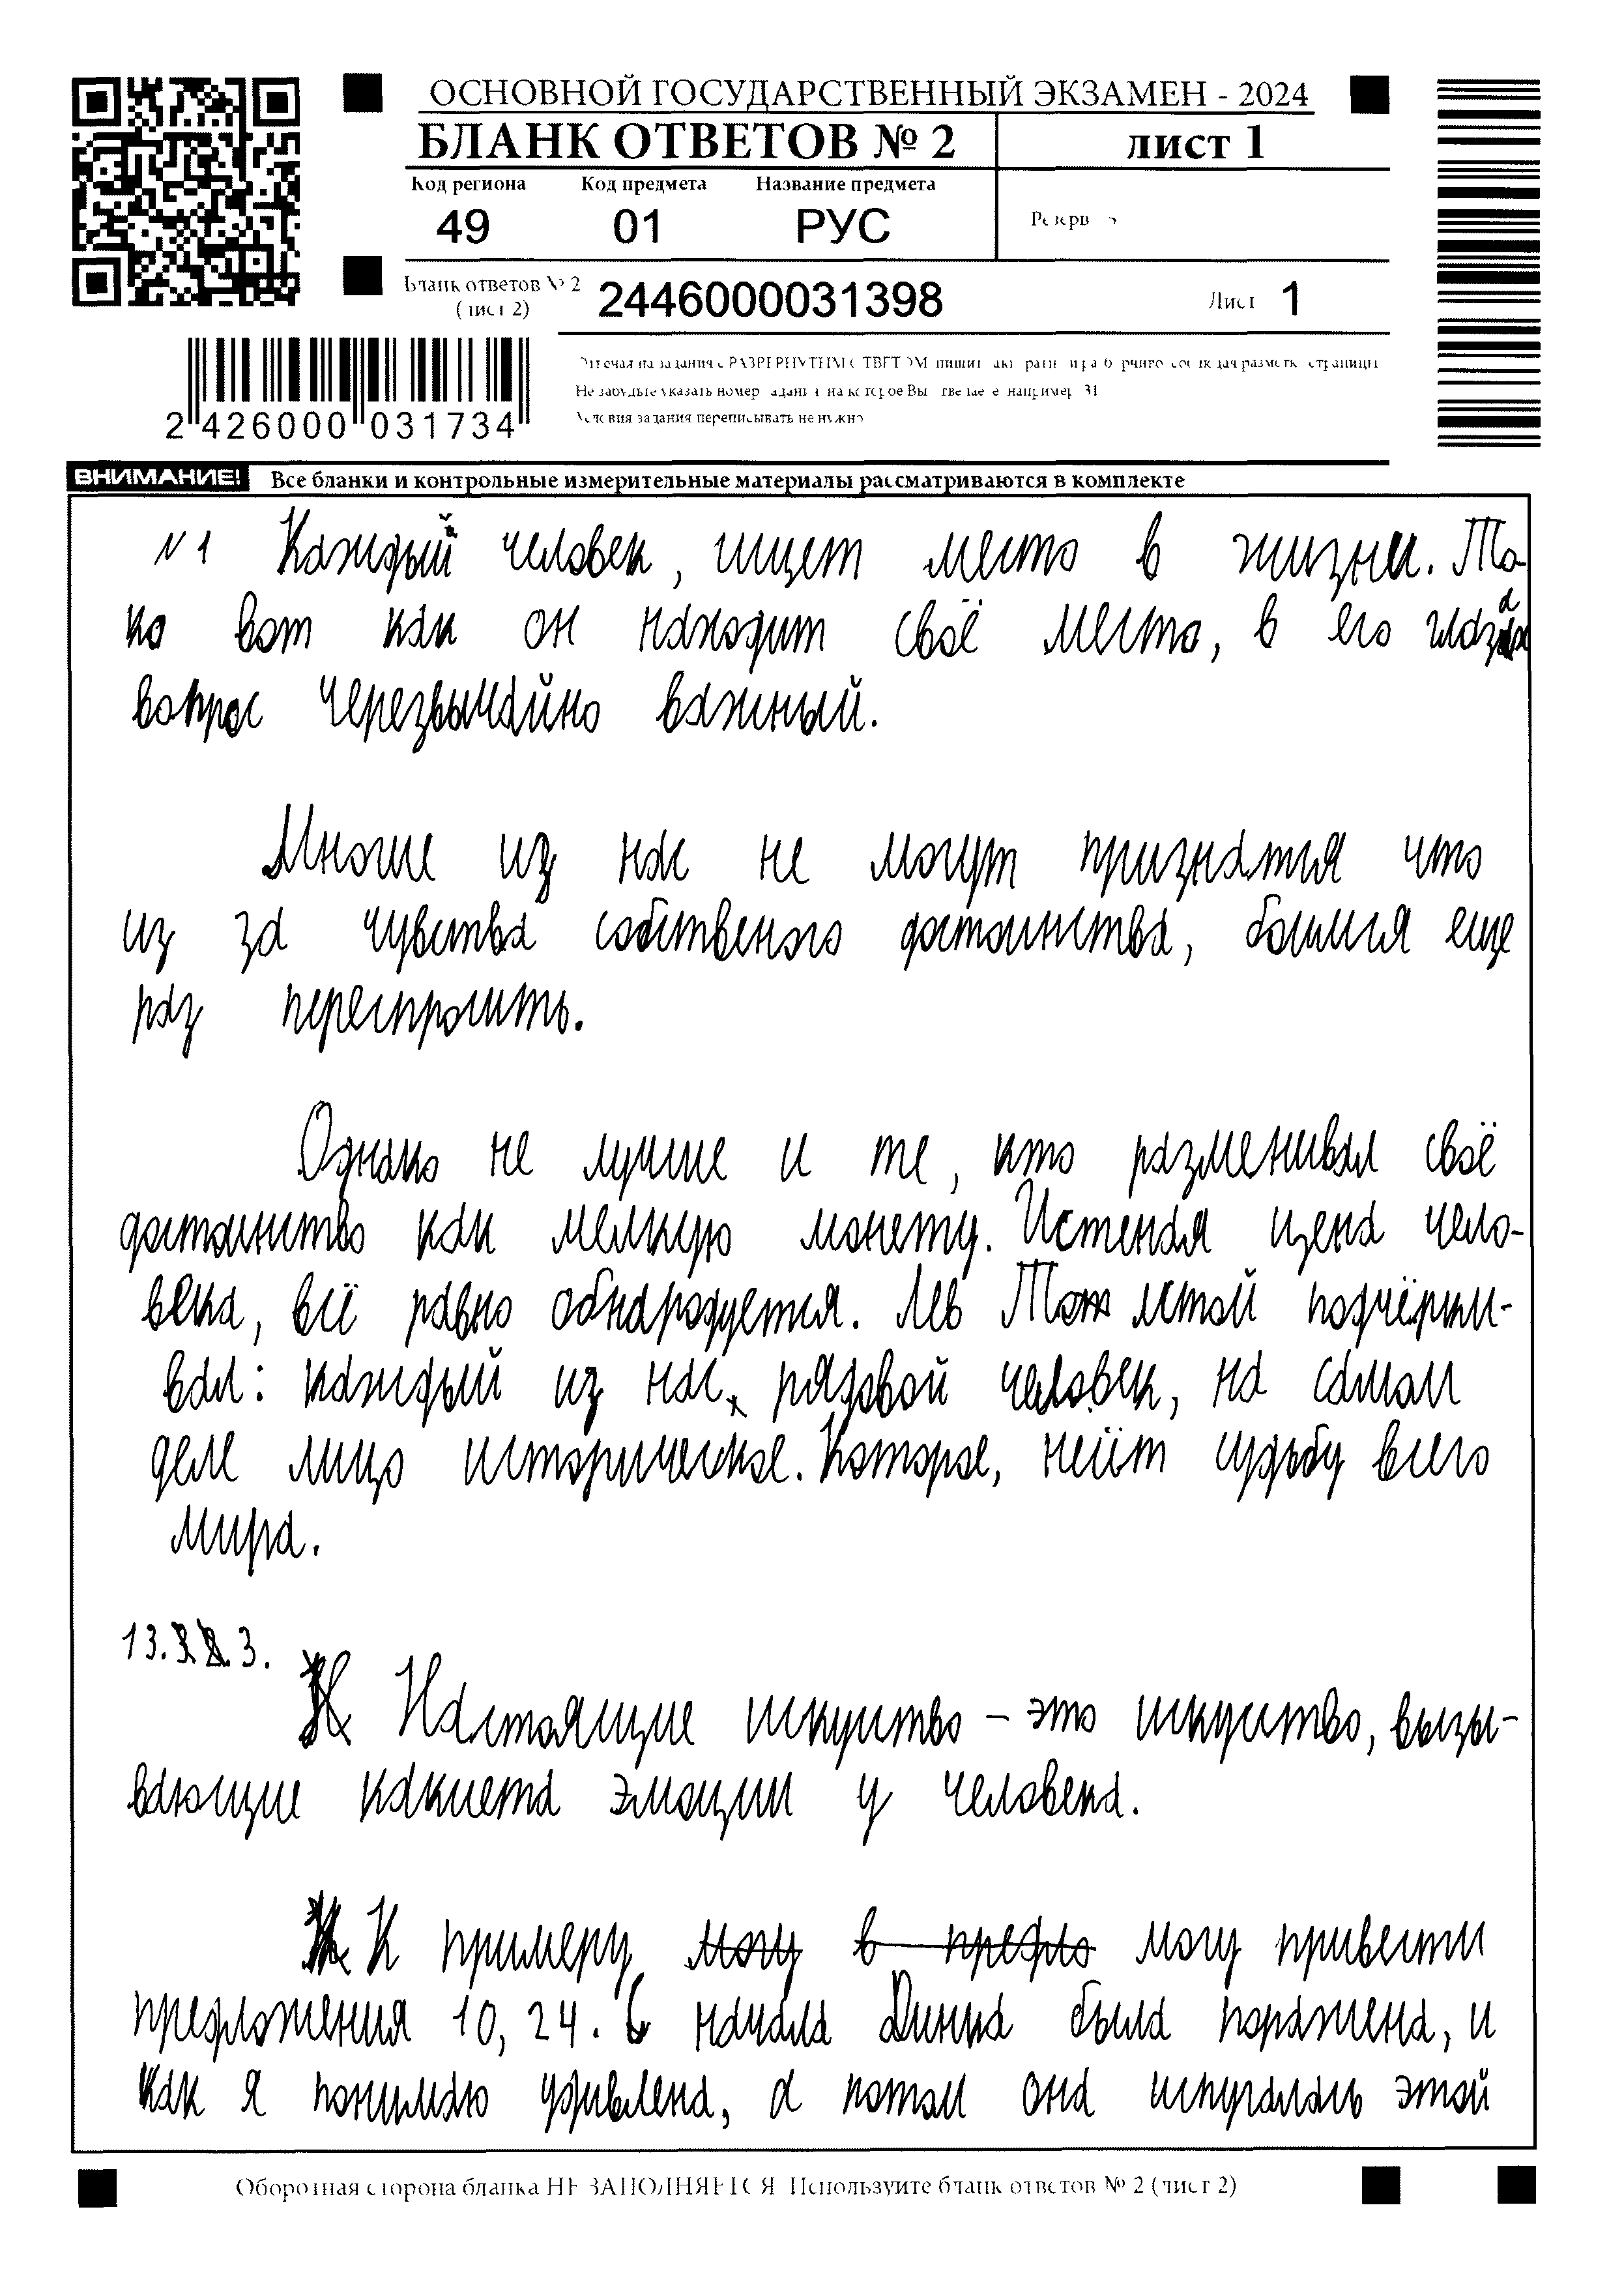 ОСНОВНОЙ ГОСУДАРСТВЕННЫЙ ЭКЗАМЕН - 2024
БЛАНК ОТВЕТОВ № 2 лист 1
Код региона Код предмета Название предмета
49 01 РУС Резерв
Бланк ответов № 2
(лист 2) 2446000031398 Лист 1
2 426000 031734
Не забудьте указать номер задания на которое Вы отвечаете например 31
Условия задания переписывать не нужно
ВНИМАНИЕ! Все бланки и контрольные измерительные материалы рассматриваются в комплекте
N 1 Каждый человек, ищет место в жизни. То-
ко вот как он находит своё место, в его глазах
вопрос черезвычайно важный.
Многие из нас не могут признатся что
из за чувства собственого достоинства, боимся еще
раз переспросить.
Однако не лучше и те, кто разменивал своё
достоинство как мелкую монету. Истеная цена чело-
века, всё равно обнародуется. Лев Толстой подчёрки-
вал: каждый из нас, рядовой человек, на самом
деле лицо историческое. Которое, несёт судьбу всего
мира.
13.3.
Настоящие искуство – это искуство, вызы-
вающие какиета эмоции у человека.
К примеру могу в предло могу привести
предложения 10, 24. С начала Динка была поражена, и
как я понимаю удивлена, а потом она испугалась этой
Оборотная сторона бланка НЕ ЗАПОЛНЯЕТСЯ Используйте бланк ответов № 2 (лист 2)